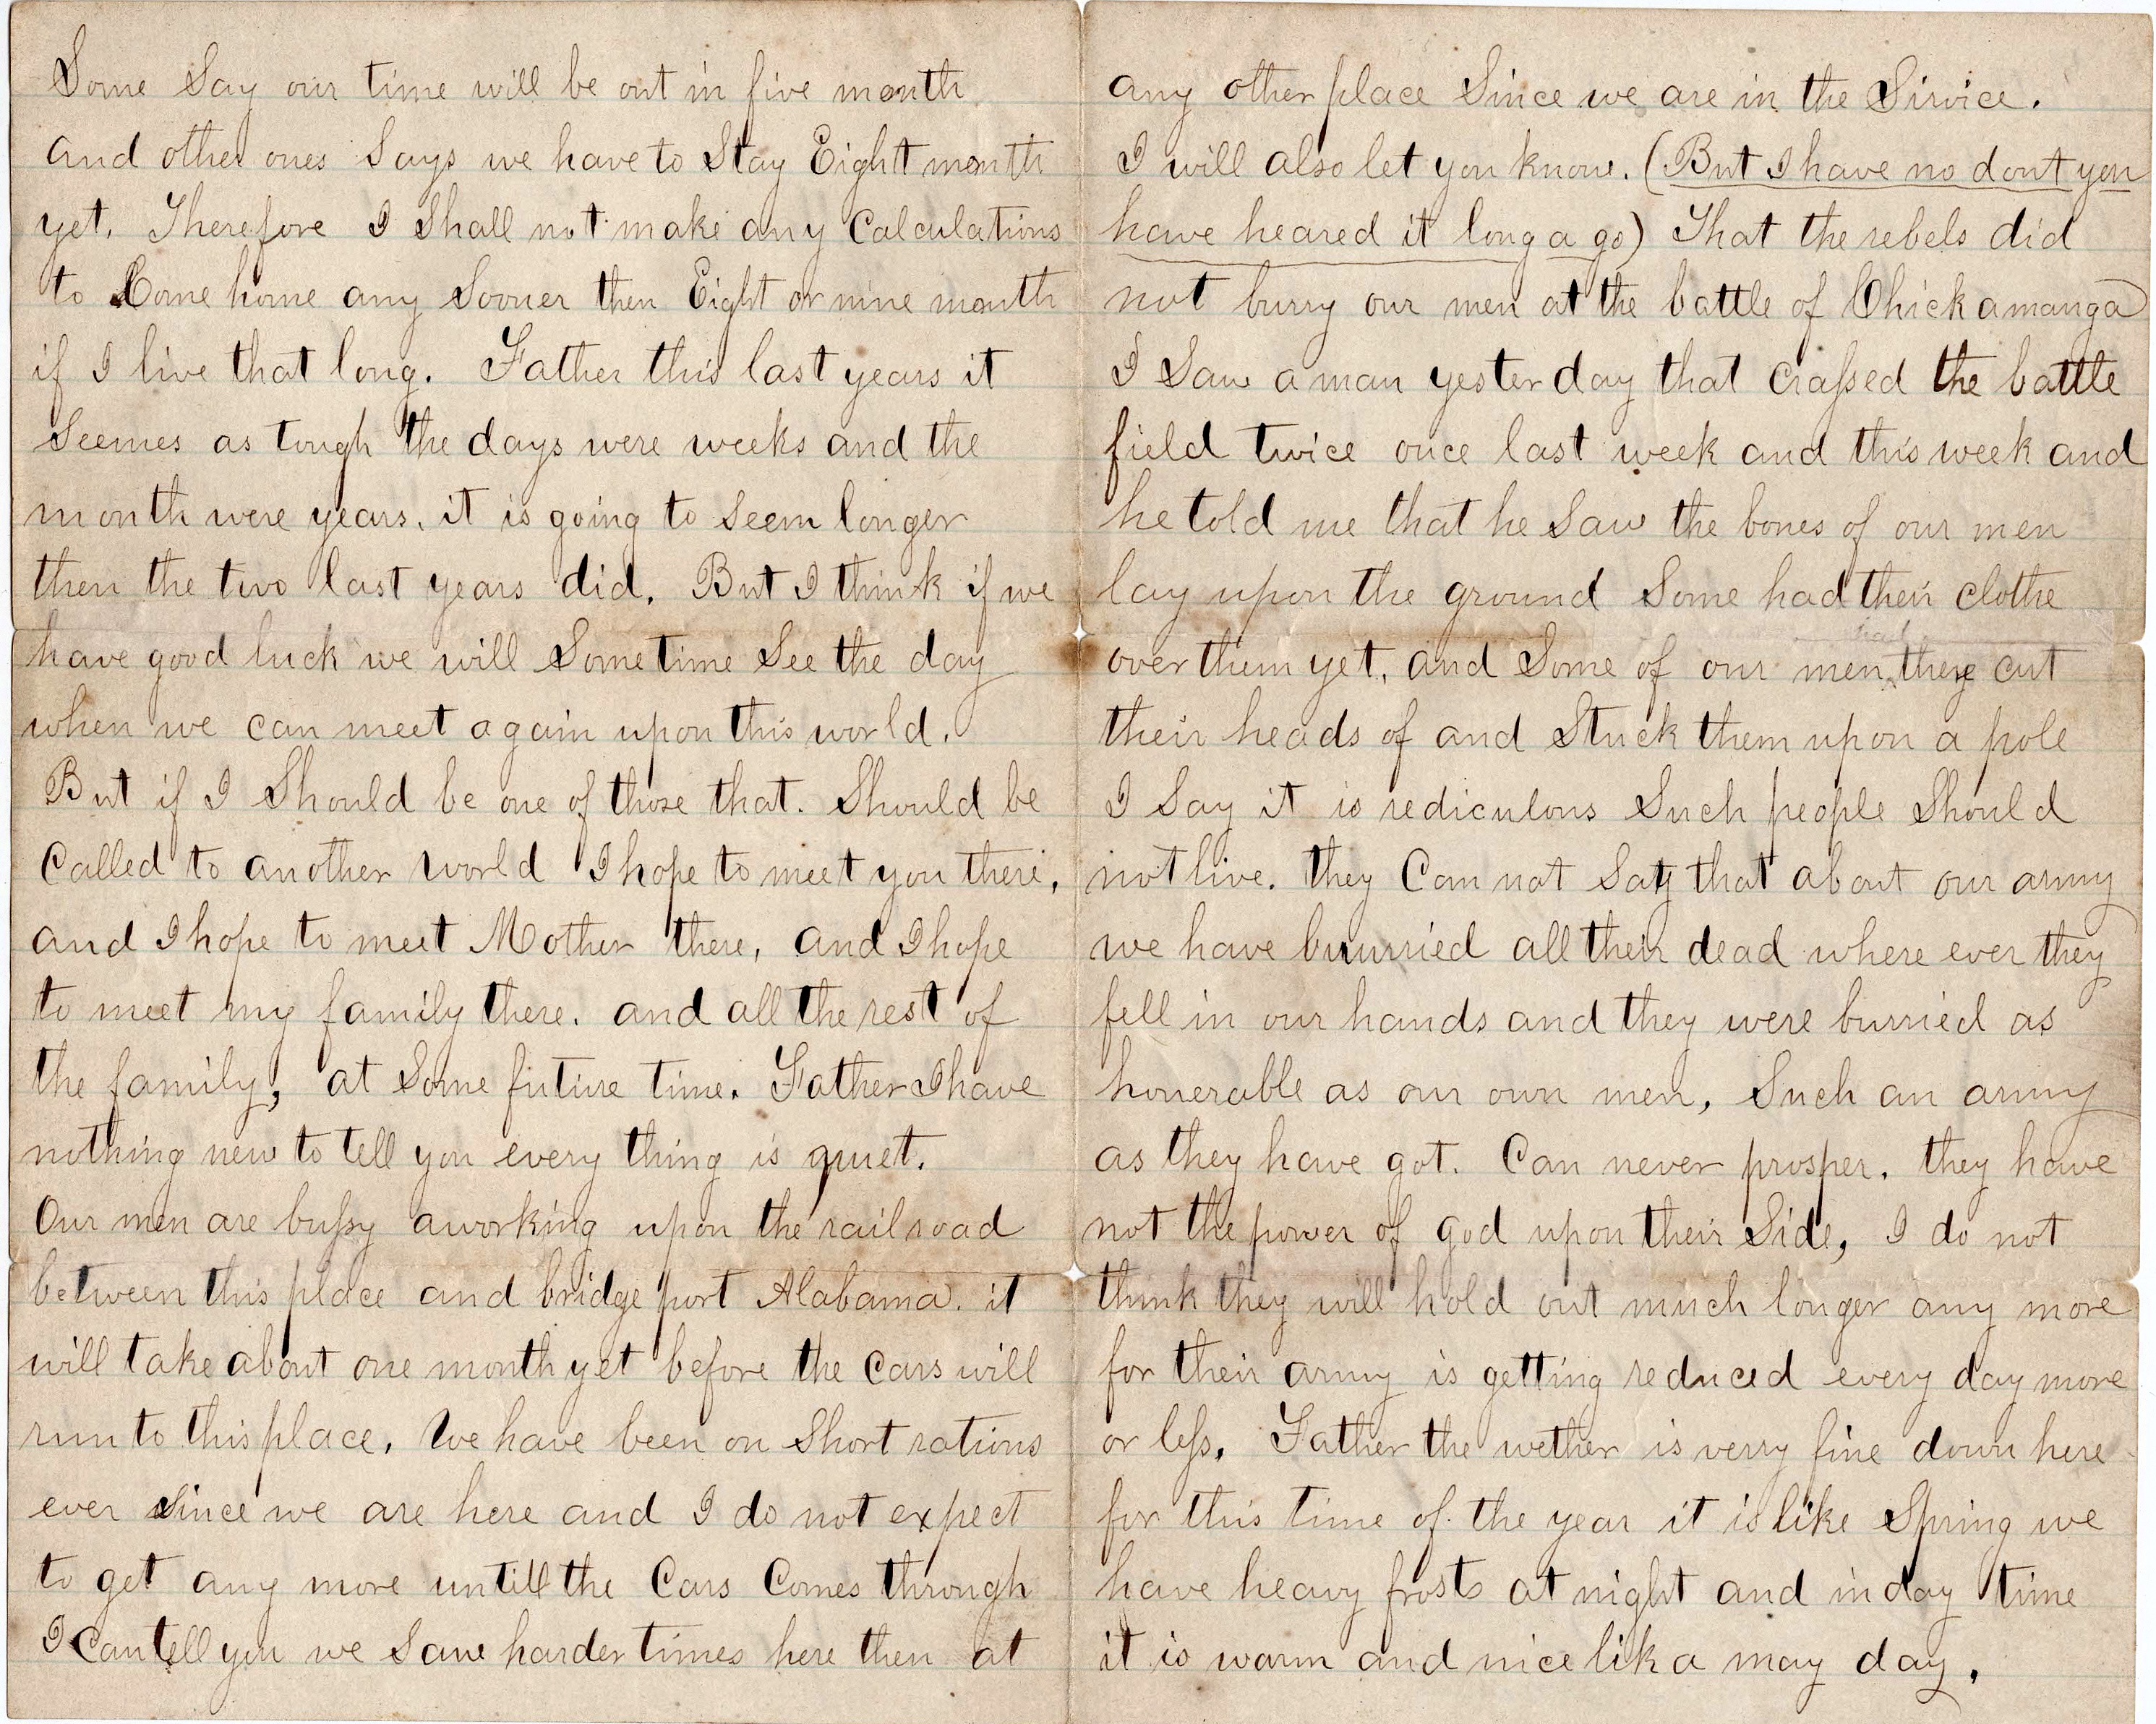 Some Say our time will be out in five month
and other ones Says we have to Stay Eight month
yet. Therefore I Shall not make any Calculations
to Come home any Sooner then Eight or nine month
if I live that long. Father this last years it
Seemes as tough the days were weeks and the
month were years. it is going to Seem longer
then the two last years did. But I think if we
have good luck we will Sometime See the day
when we can meet again upon this world.
But if I Should be one of those that. Should be
Called to another world I hope to meet you there,
and I hope to meet Mother there, and I hope
to meet my family there. and all the rest of
the family, at Some future time. Father I have
nothing new to tell you every thing is quiet.
Our men are bussy aworking upon the railroad
between this place and bridge port Alabama. it
will take about one month yet before the Cars will
run to this place. We have been on Short rations
ever Since we are here and I do not expect
to get any more untill the Cars Comes through
I Can tell you we Saw harder times here then at
any other place Since we are in the Sirvice.
I will also let you know. (But I have no dout you
have heared it long a go) That the rebels did
not burry our men at the battle of Chickamanga
I Saw a man yesterday that crassed the battle
field twice once last week and this week and
he told me that he Saw the bones of our men
lay upon the ground Some had their clothe
over them yet, and Some of our men had they cut
their heads of and Stuck them upon a pole
I Say it is rediculous Such people Should
not live. they Can not Say that about our army
we have buurried all their dead where ever they
fell in our hands and they were burried as
honerable as our own men, Such an army
as they have got. Can never prosper. they have
not the power of god upon their Side, I do not
think they will hold out much longer any more
for their army is getting reduced every day more
or less. Father the wether is verry fine down here
for this time of the year it is like Spring we
have heavy frosts at night and in day time
it is warm and nice lik a may day.